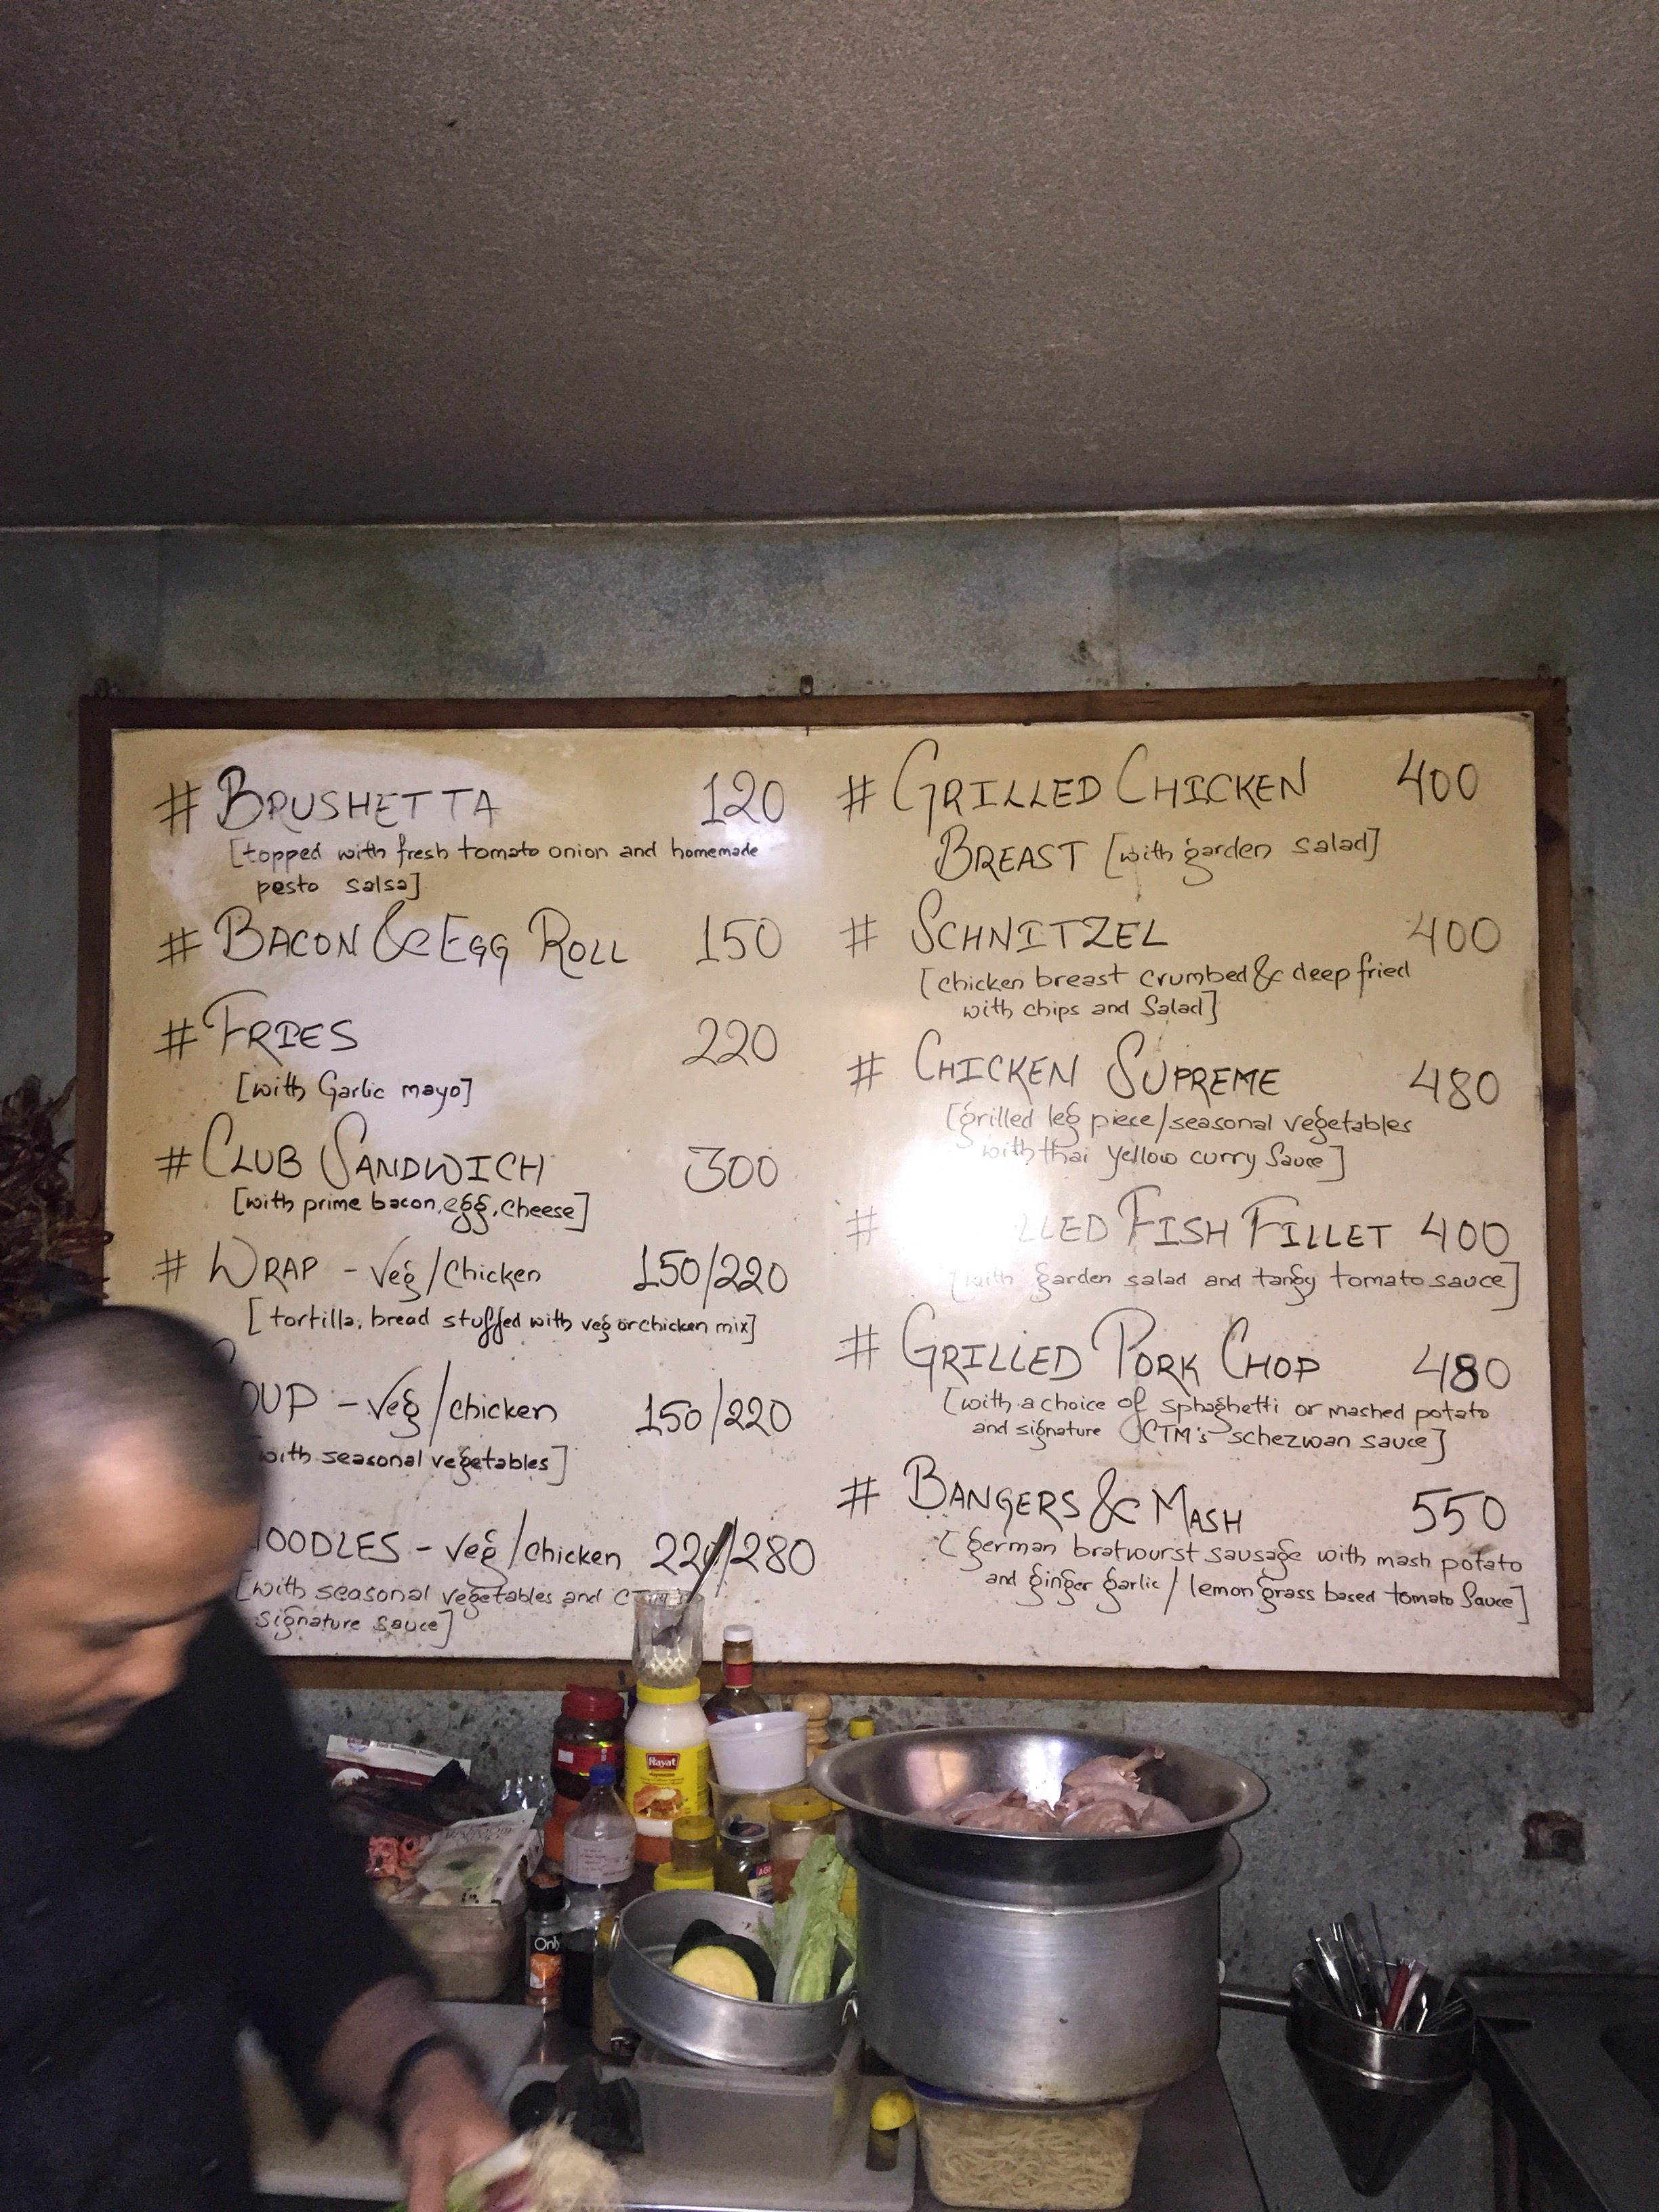 # BRUSHETTA 120
[topped with fresh tomato onion and homemade
pesto salsa]
# BACON & EGG ROLL 150
# FRIES 220
[with Garlic mayo]
# CLUB SANDWICH 300
[with prime bacon, egg, cheese]
# WRAP - Veg/Chicken 150/220
[tortilla, bread stuffed with veg or chicken mix]
OUP - Veg/chicken 150/220
with seasonal vegetables]
OODLES - Veg/chicken 220/280
[with seasonal vegetables and
signature sauce]
# GRILLED CHICKEN 400
BREAST [with garden salad]
# SCHNITZEL 400
[chicken breast crumbed & deep fried
with chips and Salad]
# CHICKEN SUPREME 480
[grilled leg piece/seasonal vegetables
with thai yellow curry Sauce]
# LLED FISH FILLET 400
[with garden salad and tangy tomato sauce]
# GRILLED PORK CHOP 480
[with a choice of sphaghetti or mashed potato
and signature CTM's schezwan sauce]
# BANGERS & MASH 550
[german bratwurst sausage with mash potato
and ginger garlic/lemon grass based tomato Sauce]
Hayat
Only